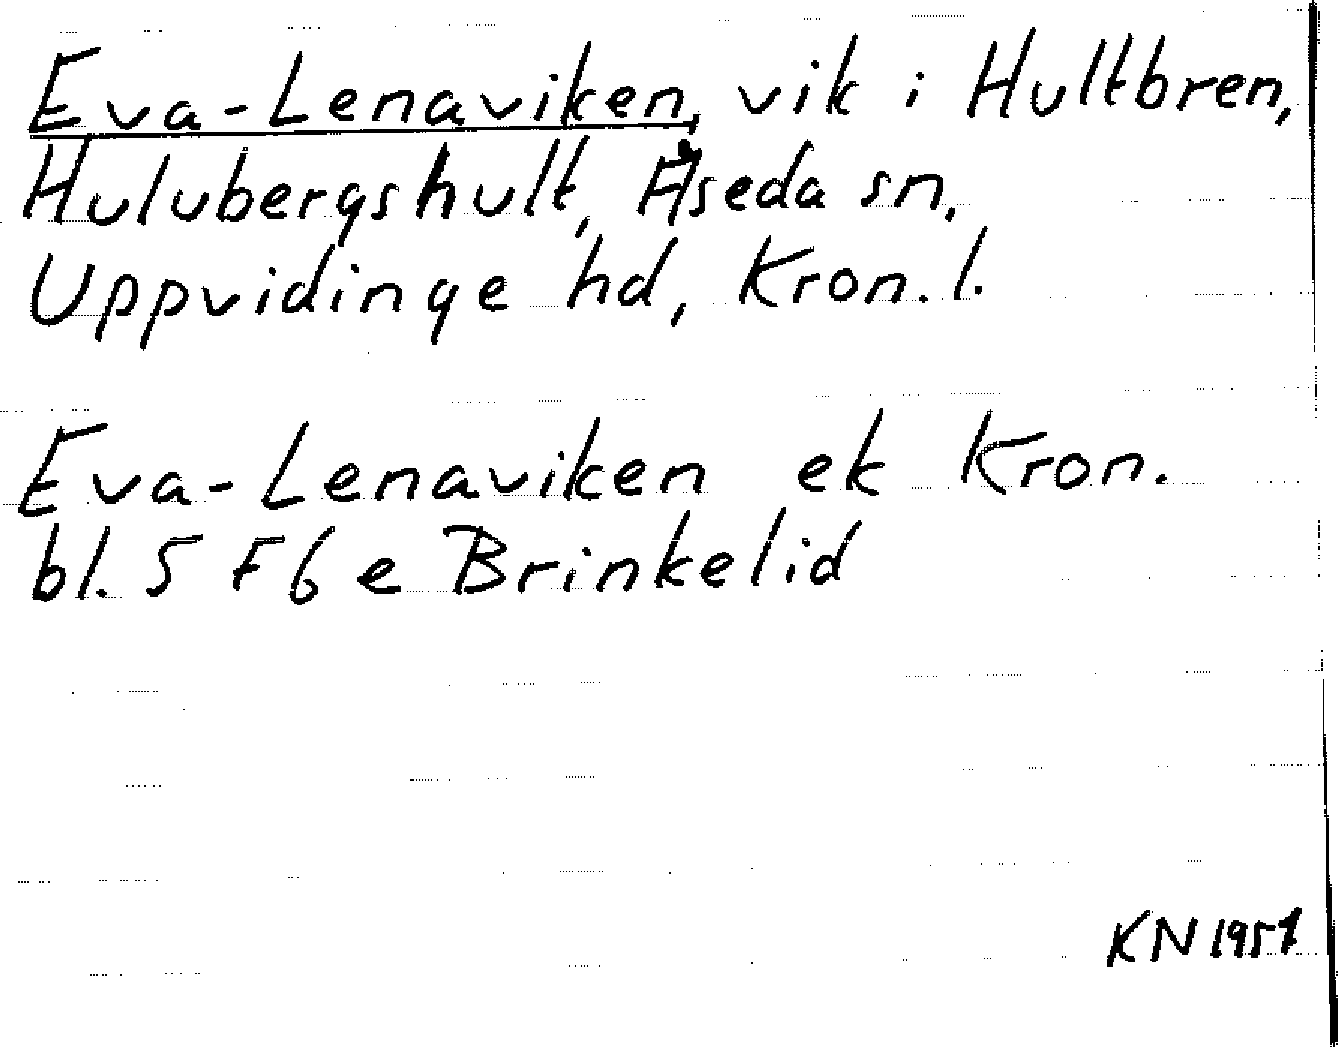 Eva-Lenaviken, vik i Hultbren,
Hulubergshult, Åseda sn,
Uppvidinge hd, Kron. l.
Eva-Lenaviken ek Kron.
bl. 5 F6 e Brinkelid
KN 1951